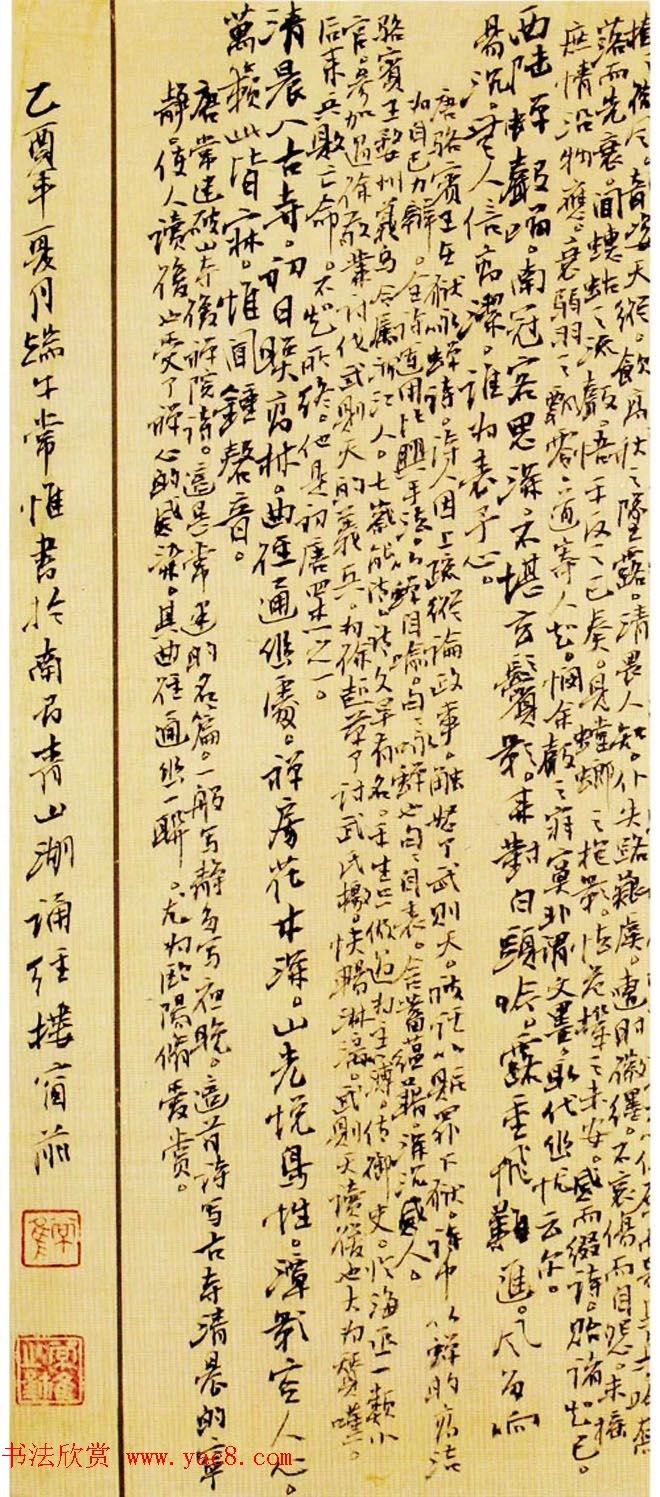 姿天縱。飲高秋之墜露。清畏人知。仆失路艱虞。遭時徽纆。不哀傷而自怨。未搖
落而先衰。聞蟪蛄之流聲。悟平反之已奏。見螳螂之抱影。怯危機之未安。感而綴詩。貽諸知己。
庶情沿物應。哀弱羽之飄零。道寄人知。憫余聲之寂寞。非謂文墨。取代幽忧云尔。
西陸蟬聲唱。南冠客思深。不堪玄鬢影。来對白頭吟。露重飛難進。风多响
易沉。无人信高潔。谁为表予心。
唐骆賓王在獄咏蟬诗。诗人因上疏縱論政事。触怒了武则天。被誣以賍罪下獄。诗中以蟬的高洁
为自己力辯。全诗運用比興手法。以蟬自喻。句句咏蟬也句句自表。含蓄蕴藉。深沉感人。
骆賓王婺州義乌今属浙江人。七歲能诗。诗文早有名。平生只做過主薄。侍御史。临海丞一類小
官。参加過徐敬業讨伐武则天的義兵。为徐起草了讨武氏檄。快畅淋漓。武则天读後也大为贊嘆。
后来兵敗亡命。不知所终。他是初唐四杰之一。
清晨入古寺。初日照高林。曲径通幽處。禅房花木深。山光悦鸟性。潭影空人心。
萬籁此皆寂。惟闻鍾磬音。
唐常建破山寺後禅院诗。這是常建的名篇。一般写静多写夜晚。這首诗写古寺清晨的寧
静。使人读後也受了禅心的感染。其曲径通幽一聯。尤为歐陽脩爱赏。
乙酉年夏月端午常惟書於南昌青山湖诵经楼窗前
书法欣赏 www.yac8.com